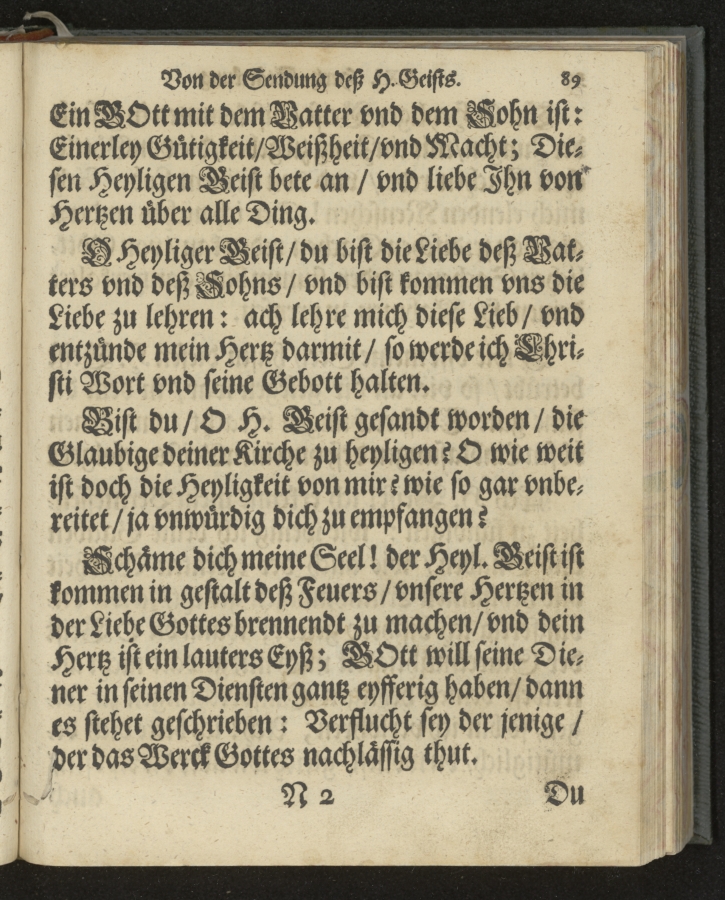 Von der Sendung deß H. Geists. 89
Ein GOtt mit dem Vatter vnd dem Sohn ist:
Einerley Gütigkeit/Weißheit/vnd Macht; Die-
sen Heyligen Geist bete an / vnd liebe Jhn von
Hertzen über alle Ding.
O Heyliger Geist/ du bist die Liebe deß Vat-
ters vnd deß Sohns / vnd bist kommen vns die
Liebe zu lehren: ach lehre mich diese Lieb/ vnd
entzünde mein Hertz darmit / so werde ich Chri-
sti Wort vnd seine Gebott halten.
Bist du/ O H. Geist gesandt worden / die
Glaubige deiner Kirche zu heyligen? O wie weit
ist doch die Heyligkeit von mir? wie so gar vnbe-
reitet / ja vnwürdig dich zu empfangen?
Schäme dich meine Seel! der Heyl. Geist ist
kommen in gestalt deß Feuers / vnsere Hertzen in
der Liebe Gottes brennendt zu machen/ vnd dein
Hertz ist ein lauters Eyß; GOtt will seine Die-
ner in seinen Diensten gantz eyfferig haben/ dann
es stehet geschrieben: Verflucht sey der jenige /
der das Werck Gottes nachlässig thut.
N 2 Du